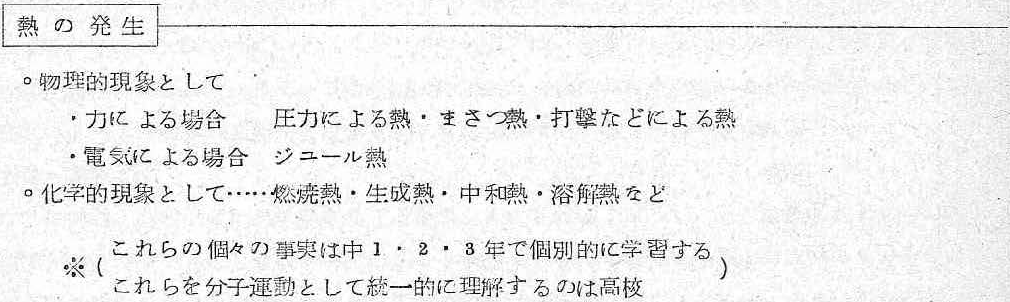 熱の発生
○物理的現象として
・力による場合　圧力による熱・まさつ熱・打撃などによる熱
・電気による場合　ジュール熱
○化学的現象として……燃焼熱・生成熱・中和熱・溶解熱など
※(これらの個々の事実は中1・2・3年で個別的に学習する
これらを分子運動として統一的に理解するのは高校)